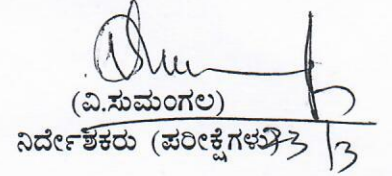 (ವಿ.ಸುಮಂಗಲ)
ನಿರ್ದೇಶಕರು (ಪರೀಕ್ಷೆಗಳು) 23/3